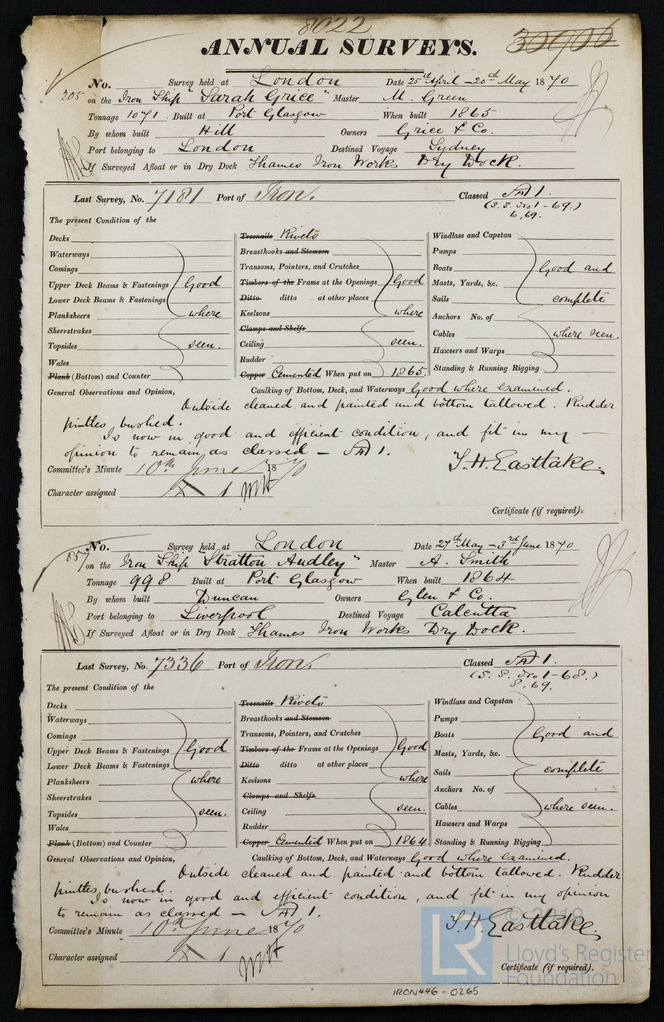 8022
ANNUAL SURVEYS. 30906
No. 205 Survey held at London Date 25th April - 20th May 1870
on the Iron Ship "Sarah Grice" Master M. Green
Tonnage 1071 Built at Port Glasgow When built 1865
By whom built Hill Owners Grice & Co.
Port belonging to London Destined Voyage Sydney
If Surveyed Afloat or in Dry Dock Thames Iron Works Dry Dock.
Last Survey, No. 7181 Port of Iron. Classed A 1.
(S.S. No 1-69.)
6,69.
The present Condition of the
Decks Treenails Rivets Windlass and Capstan
Waterways Breasthooks and Stemson Pumps
Comings Transoms, Pointers, and Crutches Boats Good and
Upper Deck Beams & Fastenings Good Timbers of the Frame at the Openings Good Masts, Yards, &c.
Lower Deck Beams & Fastenings Ditto ditto at other places Sails complete
Planksheers where Keelsons where Anchors No. of
Sheerstrakes Clamps and Shelfs Cables where seen.
Topsides seen. Ceiling seen. Hawsers and Warps
Wales Rudder Standing & Running Rigging
Plank (Bottom) and Counter Copper Cemented When put on 1865
General Observations and Opinion, Caulking of Bottom, Deck, and Waterways Good where examined.
Outside cleaned and painted and bottom tallowed. Rudder
pintles bushed.
Is now in good and efficient condition, and fit in my
opinion to remain as classed — A 1.
Committee's Minute 10th June 1870 T. H. Eastlake.
Character assigned A 1
Certificate (if required).
No. 857 Survey held at London Date 27th May - 3rd June 1870
on the Iron Ship "Stratton Audley" Master A. Smith
Tonnage 998 Built at Port Glasgow When built 1864
By whom built Duncan Owners Glen & Co.
Port belonging to Liverpool Destined Voyage Calcutta
If Surveyed Afloat or in Dry Dock Thames Iron Works Dry Dock.
Last Survey, No. 7336 Port of Iron. Classed A 1.
(S.S. No 1-68.)
8,69.
The present Condition of the
Decks Treenails Rivets Windlass and Capstan
Waterways Breasthooks and Stemson Pumps
Comings Transoms, Pointers, and Crutches Boats Good and
Upper Deck Beams & Fastenings Good Timbers of the Frame at the Openings Good Masts, Yards, &c.
Lower Deck Beams & Fastenings Ditto ditto at other places Sails complete
Planksheers where Keelsons where Anchors No. of
Sheerstrakes Clamps and Shelfs Cables where seen.
Topsides seen. Ceiling seen. Hawsers and Warps
Wales Rudder Standing & Running Rigging
Plank (Bottom) and Counter Copper Cemented When put on 1864
General Observations and Opinion, Caulking of Bottom, Deck, and Waterways Good where examined.
Outside cleaned and painted and bottom tallowed. Rudder
pintles bushed.
Is now in good and efficient condition, and fit in my opinion
to remain as classed — A 1.
Committee's Minute 10th June 1870 T. H. Eastlake.
Character assigned A 1
Certificate (if required).
LR
Lloyd's Register
Foundation
IRON446-0265